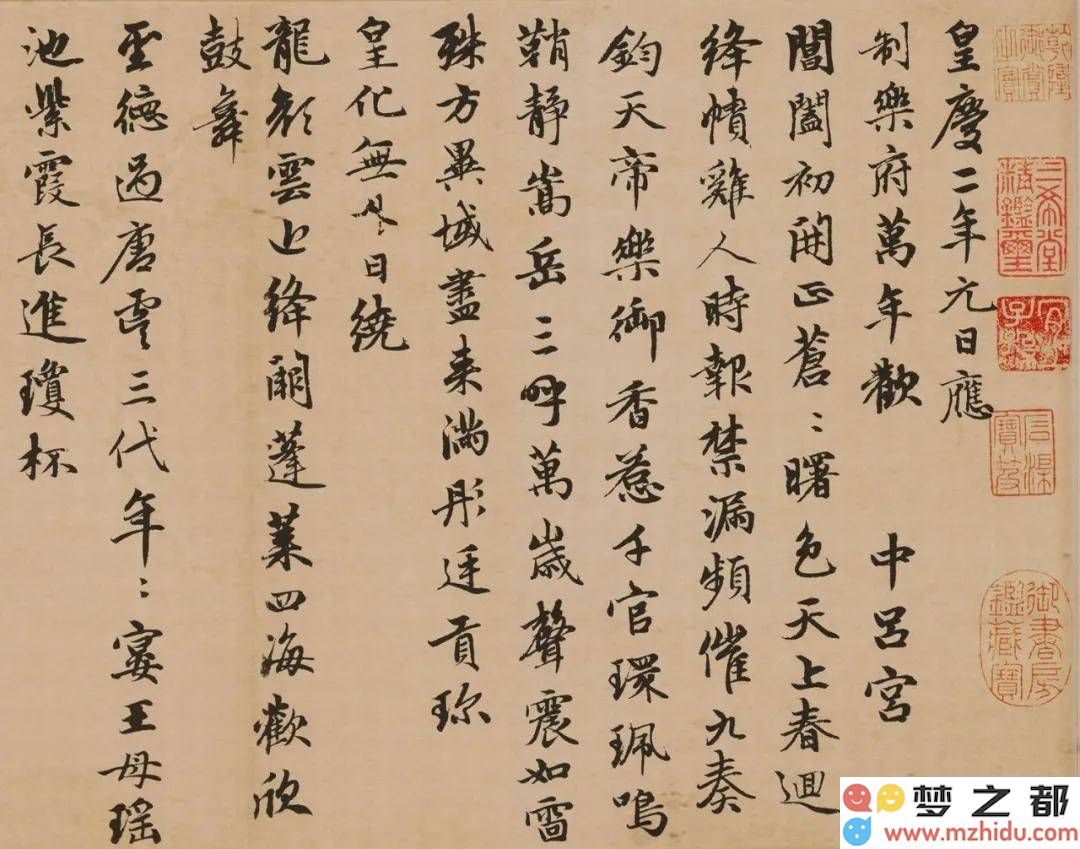 皇慶二年元日應
制樂府萬年歡 中呂宮
閶闔初開正蒼〻曙色天上春迴
絳幘雞人時報禁漏頻催九奏
鈞天帝樂御香惹千官環珮鳴
鞘靜嵩岳三呼萬歲聲震如雷
殊方異域盡来滿彤廷貢珎
皇化無外日繞
龍顏雲近絳闕蓬萊四海歡欣
鼓舞
聖德過唐虞三代年〻宴王母瑤
池紫霞長進瓊杯
乾隆御賞之寶
三希堂精鑑璽
宜子孫
石渠寶笈
御書房鑑藏寶
梦之都
www.mzhidu.com